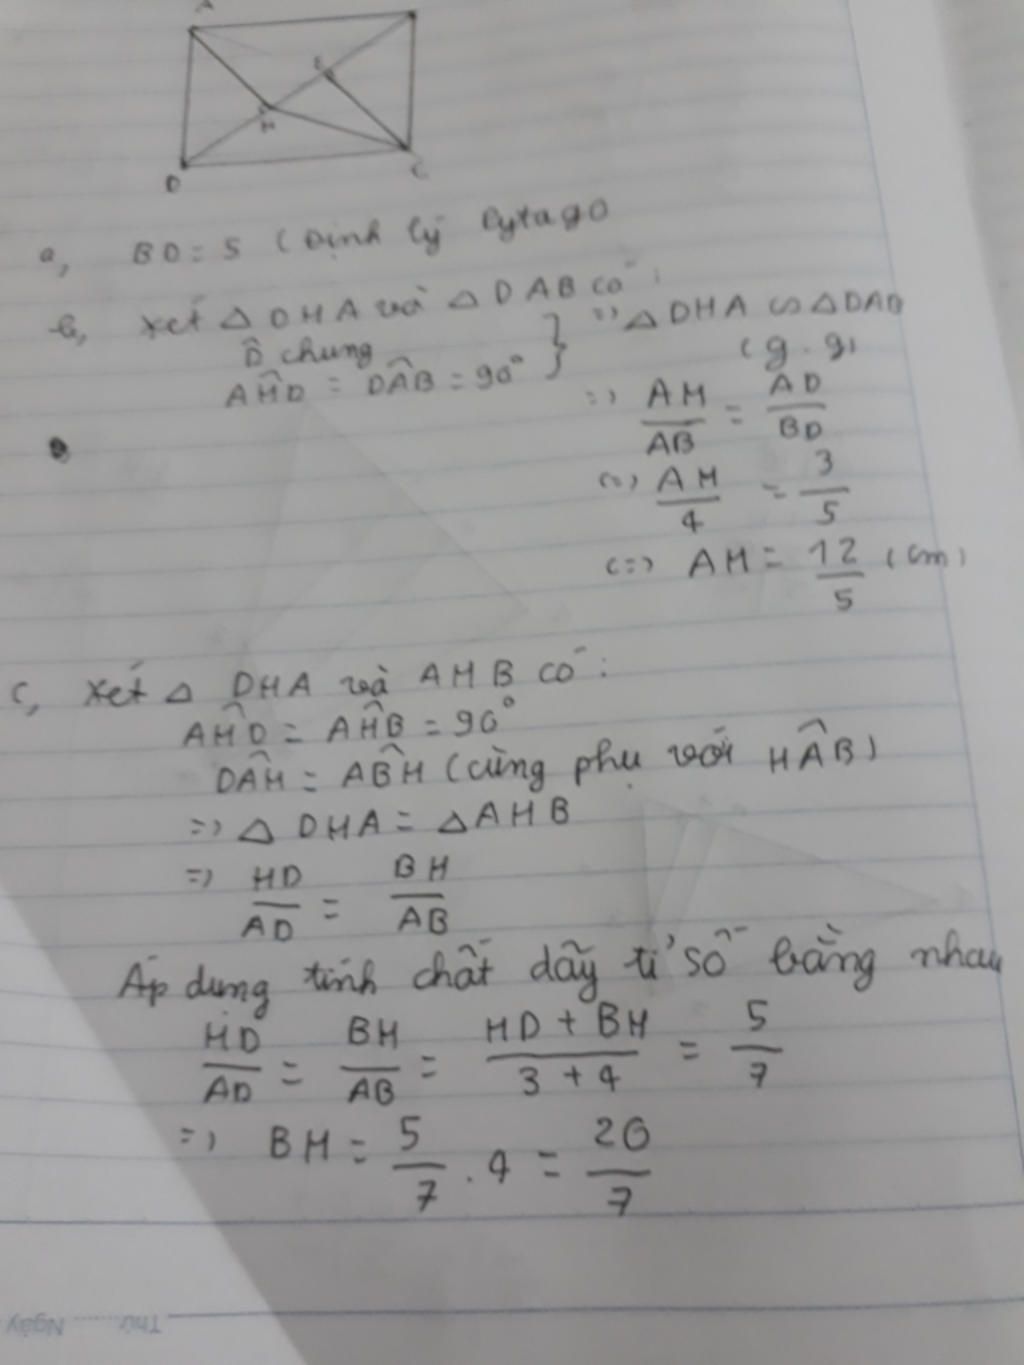 A
H
D
C
a, BD = 5 (Định lý Pytago
b, Xét △ DHA và △ DAB có :
D̂ chung
AĤD = DÂB = 90°
} => △ DHA ∽ △ DAB
(g.g)
=> AH/AB = AD/BD
<=> AH/4 = 3/5
<=> AH = 12/5 (cm)
c, Xét △ DHA và AHB có :
AĤD = AĤB = 90°
DÂH = AB̂H (cùng phụ với HÂB)
=> △ DHA = △ AHB
=> HD/AD = BH/AB
Áp dụng tính chất dãy tỉ số bằng nhau
HD/AD = BH/AB = HD + BH/3 + 4 = 5/7
=> BH = 5/7 . 4 = 20/7
Thứ ........ Ngày